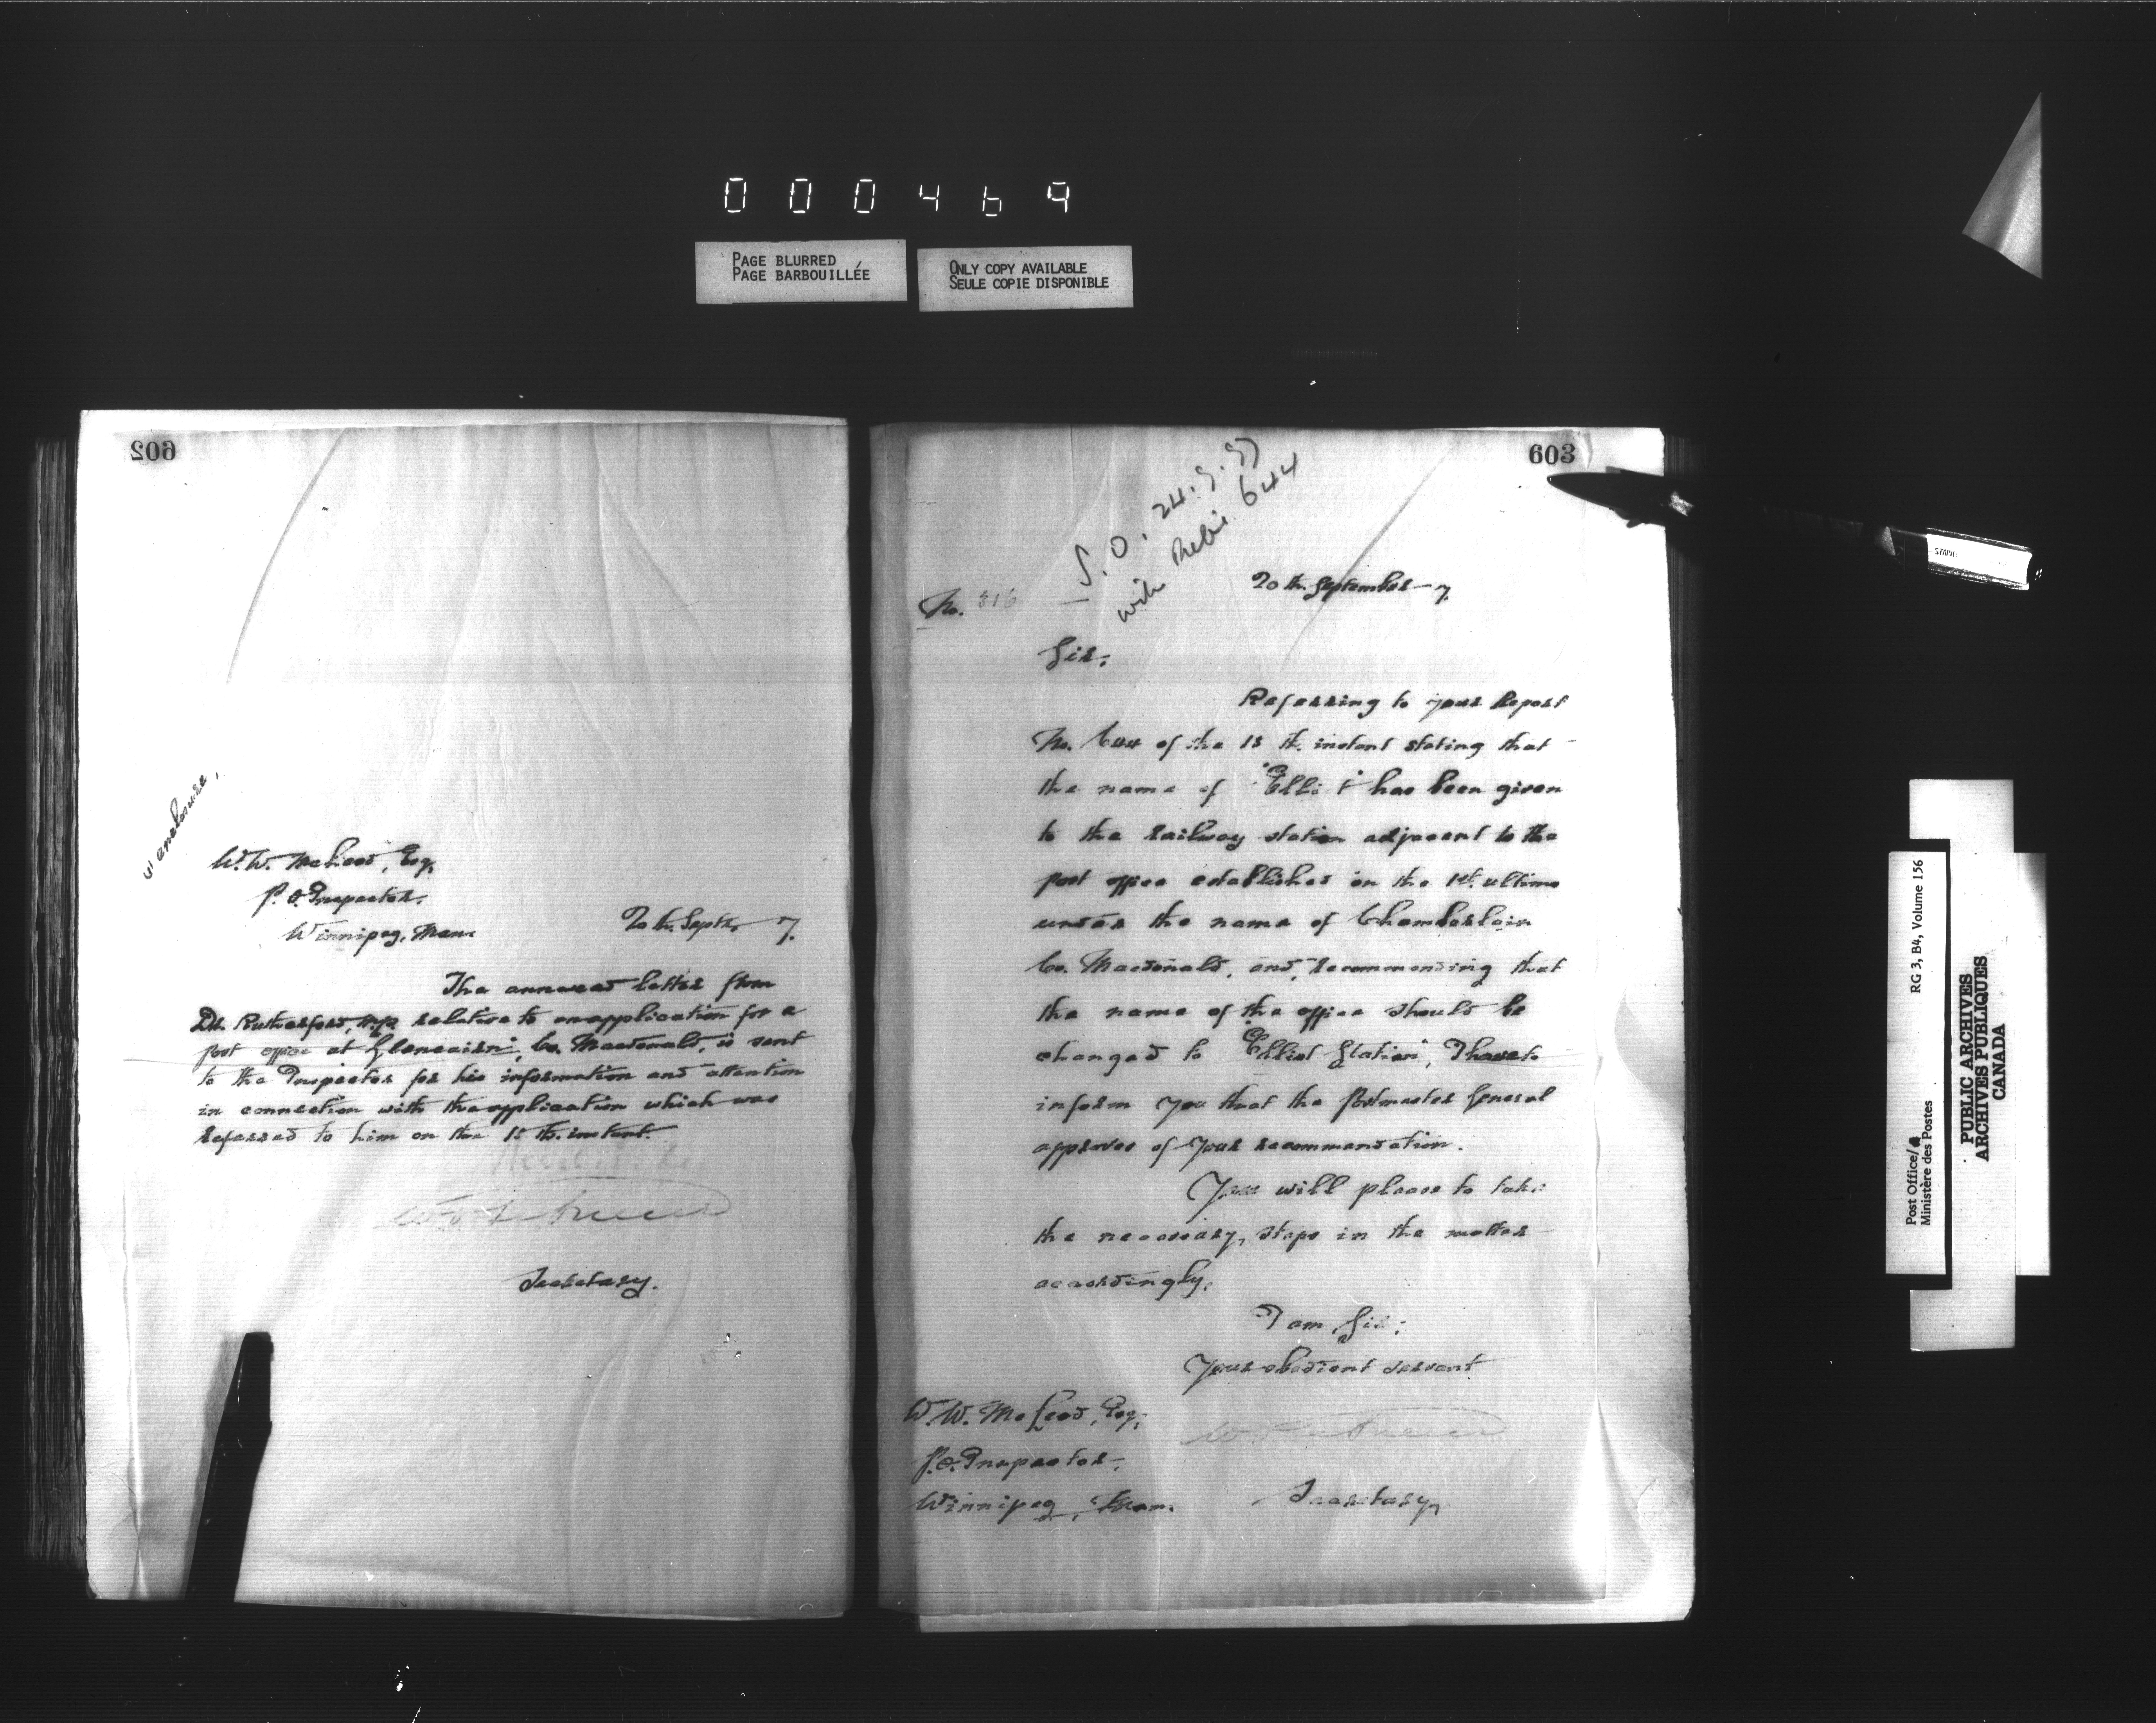 000469
PAGE BLURRED
PAGE BARBOUILLÉE
ONLY COPY AVAILABLE
SEULE COPIE DISPONIBLE
602
enclosure,
W. W. McLeod, Esq,
P. O. Inspector.
Winnipeg, Man.
20th. Septr. 7.
The annexed letter from
Dr. Rutherford, M.P. relative to an application for a
post office at "Glencairn", Co. Macdonald, is sent
to the Inspector for his information and attention
in connection with the application which was
referred to him on the 15 th. instant.
Secretary.
603
S. O. 24.9.97
with 644
No. 816
20 th. September - 7.
Sir,
Referring to your Report
No. 644 of the 15 th. instant stating that
the name of "Elliot" has been given
to the railway station adjacent to the
post office established on the 1st. ultimo
under the name of Chamberlain
Co. Macdonald, and recommending that
the name of the office should be
changed to "Elliot Station", I have to
inform you that the Postmaster General
approves of your recommendation.
You will please to take
the necessary steps in the matter
accordingly.
I am, Sir,
Your obedient servant
W. W. McLeod, Esq,
P. O. Inspector,
Winnipeg, Man.
Secretary,
STAR
RG 3, B4, Volume 156
Post Office/
Ministère des Postes
PUBLIC ARCHIVES
ARCHIVES PUBLIQUES
CANADA